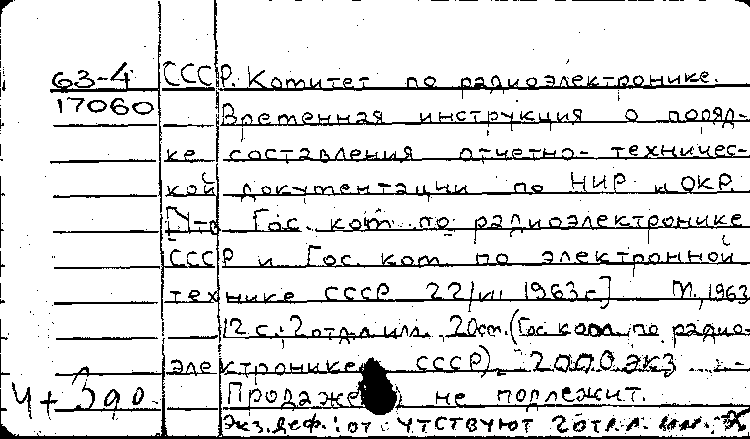 63-4 СССР. Комитет по радиоэлектронике.
17060 Временная инструкция о поряд-
ке составления отчетно-техничес-
кой документации по НИР и ОКР.
[Утв Гос. ком по радиоэлектронике
СССР и Гос. ком по электронной
технике СССР 22/VII 1963г] М., 1963
12 с.; 2 отд. л. илл. 20см. (Гос. ком. по радио-
электронике СССР). 2000 экз
Ч+ Продаже не подлежит.
Экз. деф.: отсутствуют 2 отл. л.